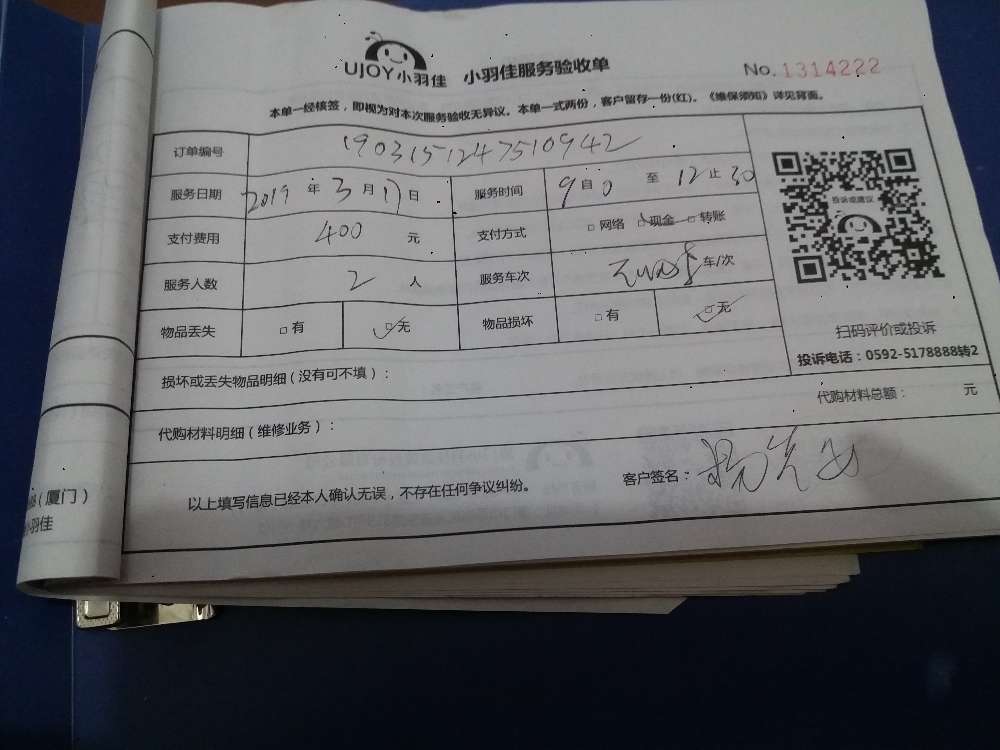 UJOY小羽佳 小羽佳服务验收单 No.1314222
本单一经核签，即视为对本次服务验收无异议。本单一式两份，客户留存一份(红)。《维保须知》详见背面。
订单编号 1903151247510942
服务日期 2019 年 3 月 17 日 服务时间 9 自 0 至 12 止 30
投诉或建议
支付费用 400 元 支付方式 □ 网络 □ 现金 □ 转账
服务人数 2 人 服务车次 车/次
物品丢失 □ 有 □ 无 物品损坏 □ 有 □ 无
扫码评价或投诉
投诉电话：0592-5178888转2
损坏或丢失物品明细（没有可不填）：
代购材料总额： 元
代购材料明细（维修业务）：
以上填写信息已经本人确认无误，不存在任何争议纠纷。 客户签名：
（厦门）
小羽佳